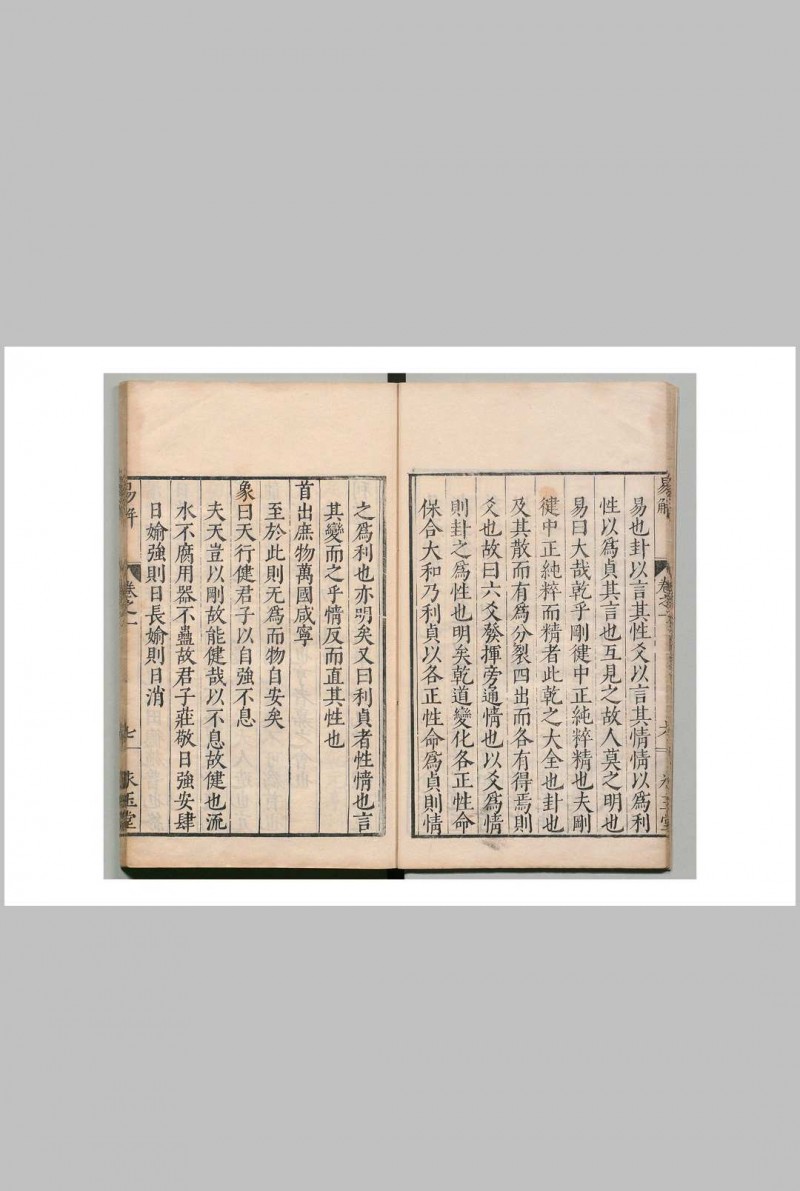 易也卦以言其性爻以言其情情以爲利
性以爲貞其言也互見之故人莫之明也
易曰大哉乾乎剛健中正純粹精也夫剛
健中正純粹而精者此乾之大全也卦也
及其散而有爲分裂四出而各有得焉則
爻也故曰六爻發揮旁通情也以爻爲情
則卦之爲性也明矣乾道變化各正性命
保合大和乃利貞以各正性命爲貞則情
之爲利也亦明矣又曰利貞者性情也言
其變而之乎情反而直其性也
首出庶物萬國咸寧
至於此則无爲而物自安矣
象曰天行健君子以自強不息
夫天豈以剛故能健哉以不息故健也流
水不腐用器不蠱故君子莊敬日強安肆
日媮強則日長媮則日消
易解
卷之一
七
氷玉堂